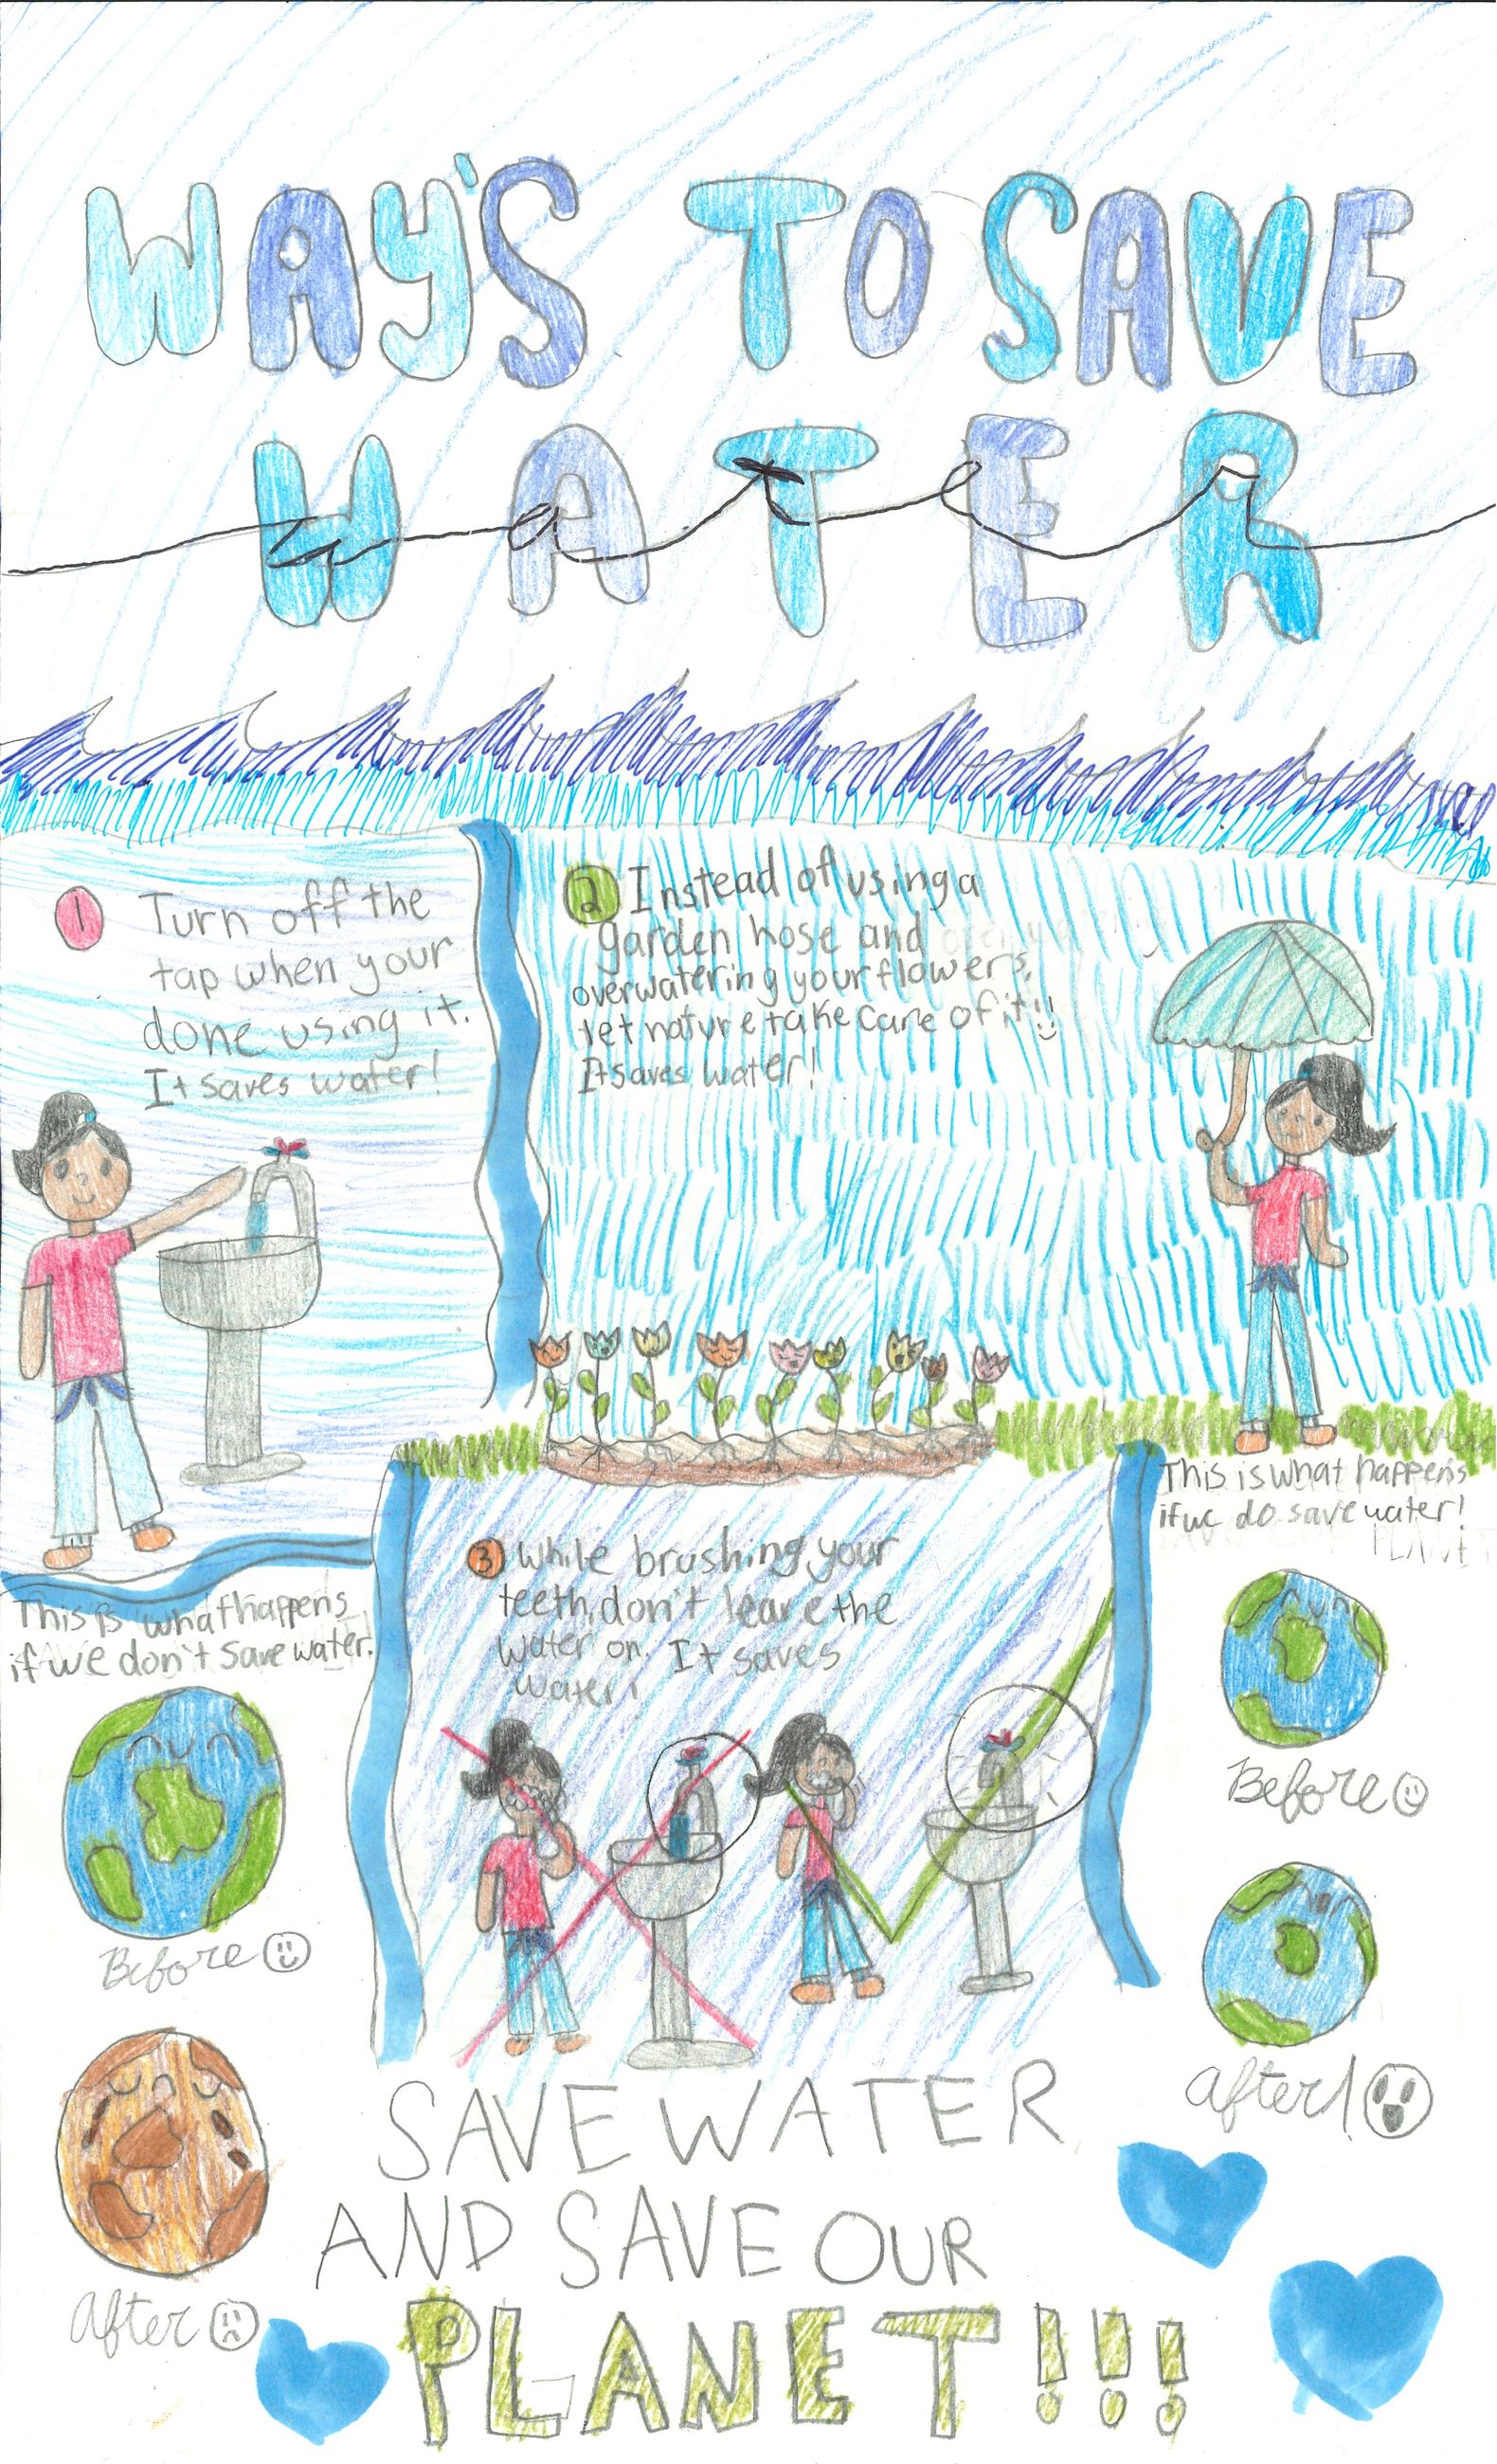 WAY'S TO SAVE
WATER
water
1 Turn off the
tap when your
done using it.
It saves water!
2 Instead of using a
garden hose and
overwatering your flowers,
let nature take care of it!!
It saves water!
3 While brushing your
teeth, don't leave the
water on. It saves
water!
This is what happens
if we don't save water.
Before
After
This is what happens
if we do save water!
Before
After!
SAVE WATER
AND SAVE OUR
PLANET!!!